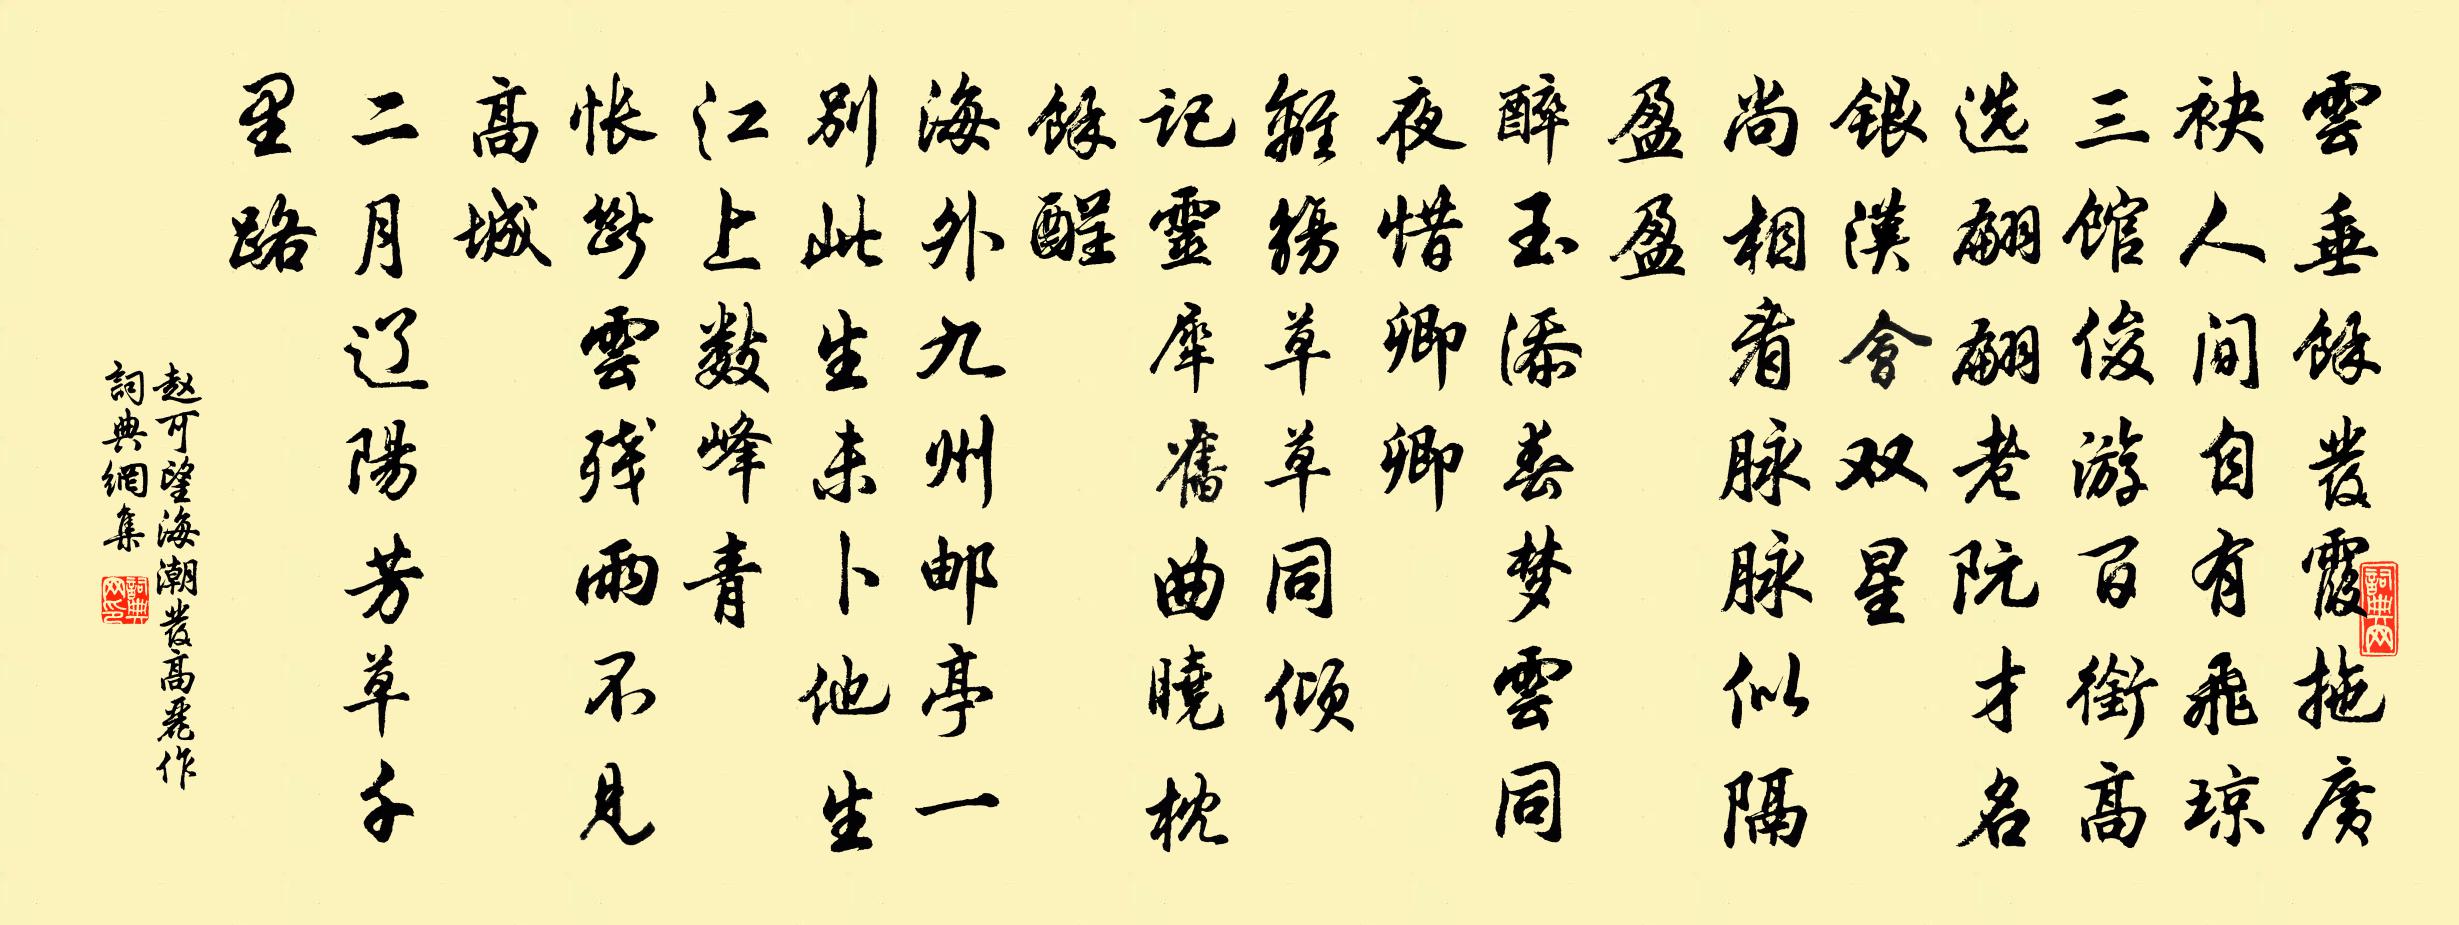 雲垂餘發霞拖廣
袂人间自有飛琼
三馆俊游百銜高
选翩翩老阮才名
银漢會双星
尚相看脉脉似隔
盈盈
醉玉添春梦雲同
夜惜卿卿
離觴草草同倾
记靈犀舊曲曉枕
餘酲
海外九州邮亭一
别此生未卜他生
江上數峰青
怅斷雲残雨不見
高城
二月辽陽芳草千
里路
赵可望海潮發高麗作
詞典網集
詞典网
詞典网印